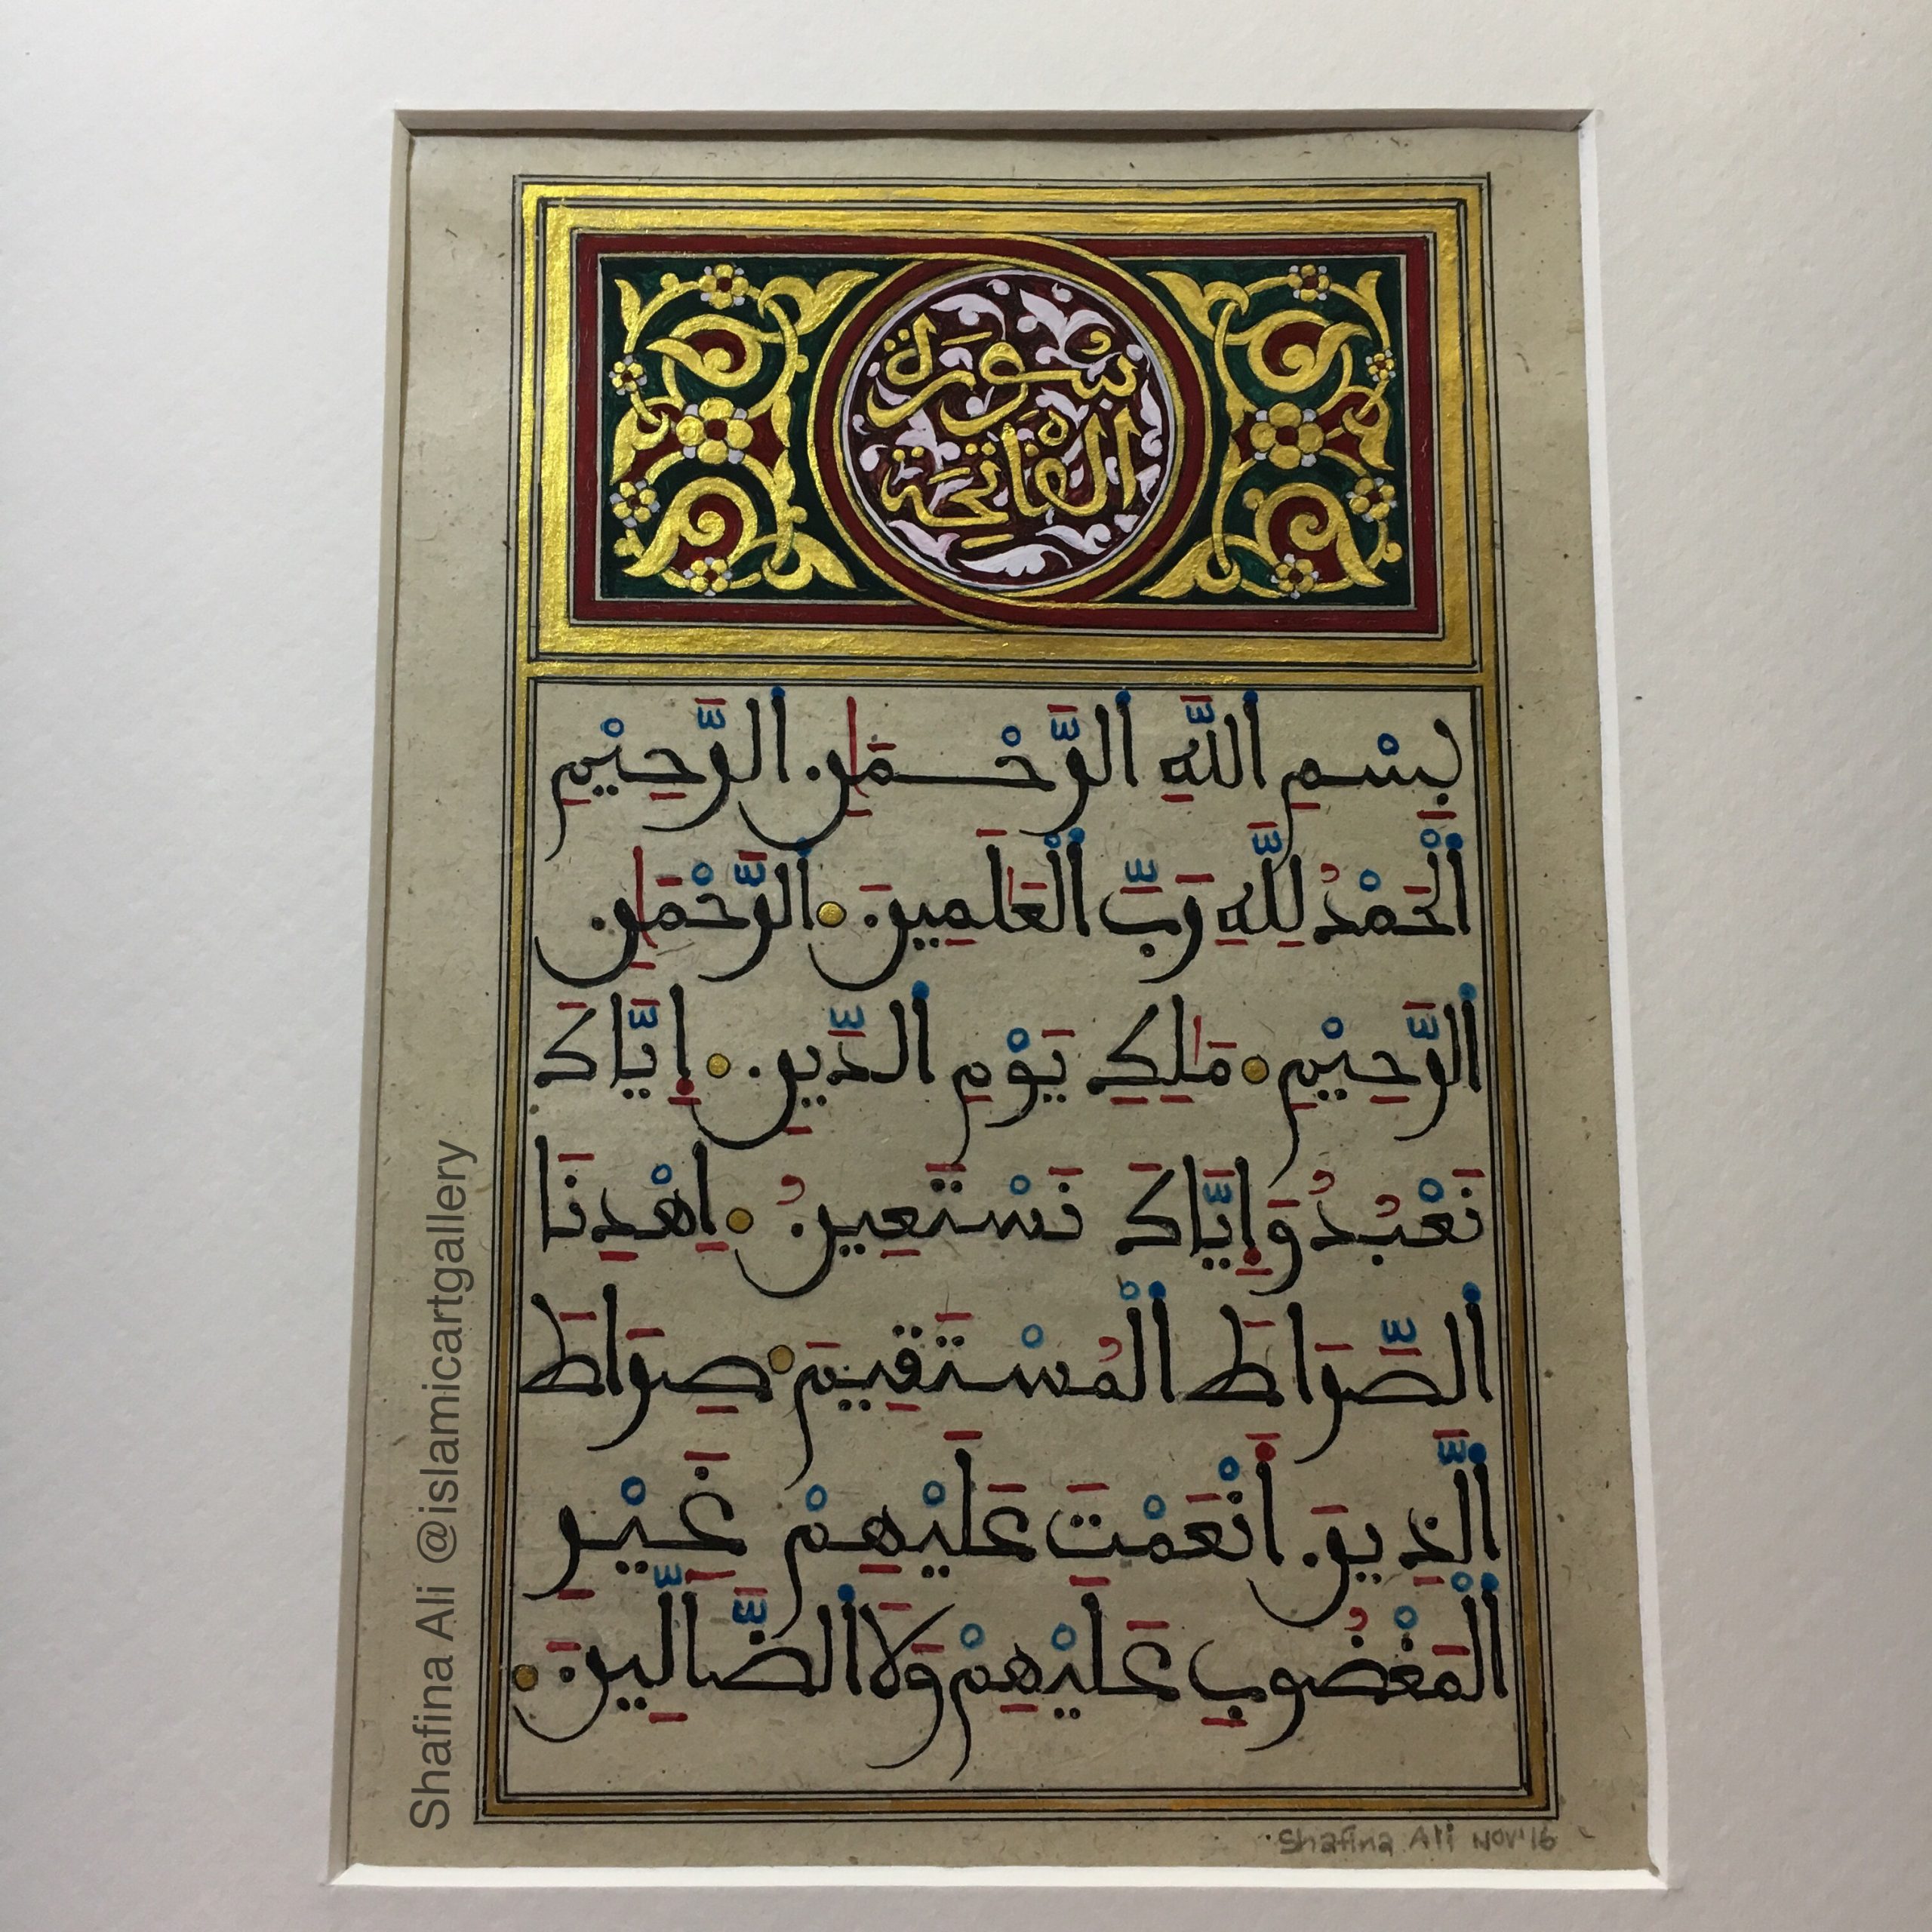 سُورَة
الْفَاتِحَة
بِسْمِ ٱللَّهِ ٱلرَّحْمَٰنِ ٱلرَّحِيْمِ
ٱلْحَمْدُ لِلَّهِ رَبِّ ٱلْعَٰلَمِينَ ٱلرَّحْمَٰنِ
ٱلرَّحِيْمِ مَٰلِكِ يَوْمِ ٱلدِّينِ إِيَّاكَ
نَعْبُدُ وَإِيَّاكَ نَسْتَعِينُ اِهْدِنَا
ٱلصِّرَاطَ ٱلْمُسْتَقِيمَ صِرَاطَ
ٱلَّذِينَ أَنْعَمْتَ عَلَيْهِمْ غَيْرِ
ٱلْمَغْضُوبِ عَلَيْهِمْ وَلَا ٱلضَّالِّينَ
Shafina Ali @islamicartgallery
Shafina Ali Nov'16